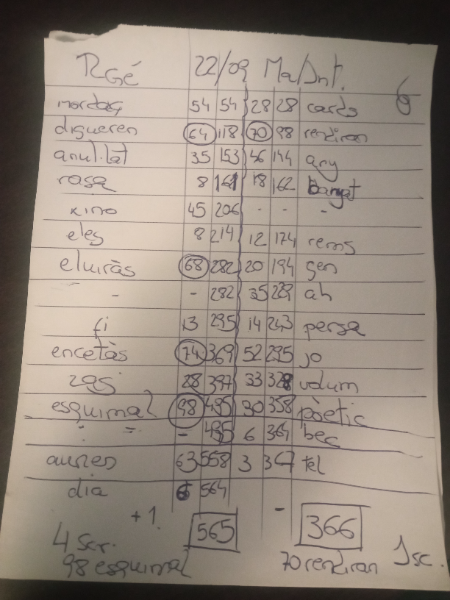 RGé 22/09 Ma/Int. 6
mordaç 54 54 28 28 cards
digueren 64 118 70 98 rendiran
anul·lat 35 153 46 144 any
rasa 8 161 18 162 banyat
xino 45 206 - - -
eles 8 214 12 174 rems
eluiràs 68 282 20 194 gen
- - 282 35 229 ah
fi 13 295 14 243 persa
encetàs 74 369 52 295 jo
zasi 28 397 33 328 volum
esquimal 98 495 30 358 poètic
" = - 495 6 364 bec
aunes 63 558 3 367 tel
dia 6 564
+1 565 - 366
4 scr. 1 sc.
98 esquimal 70 rendiran